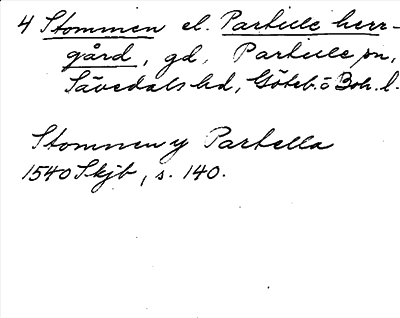 4 Stommen el. Partille herr-
gård, gd, Partille sn,
Sävedals hd, Göteb. o Boh. l.
Stommen y Partella
1540 Skjb, s. 140.